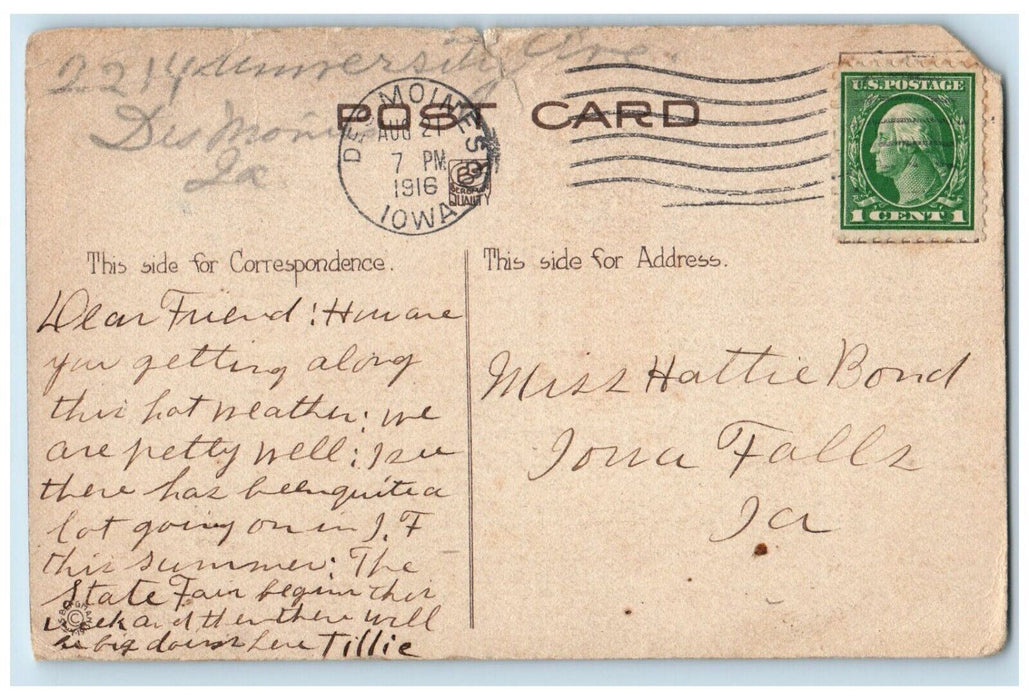 2214 University Ave.
Des Moines
Ia
POST CARD
DES MOINES
AUG 21
7 PM
1916
IOWA
QUALITY
U.S. POSTAGE
1 CENT 1
This side for Correspondence.
This side for Address.
Dear Friend: How are
you getting along
this hot weather; we
are petty well; I see
there has been quite a
lot going on in I. F
this summer: The
State Fair begins this
week and then there will
be big doins here Tillie
Miss Hattie Bond
Iowa Falls
Ia